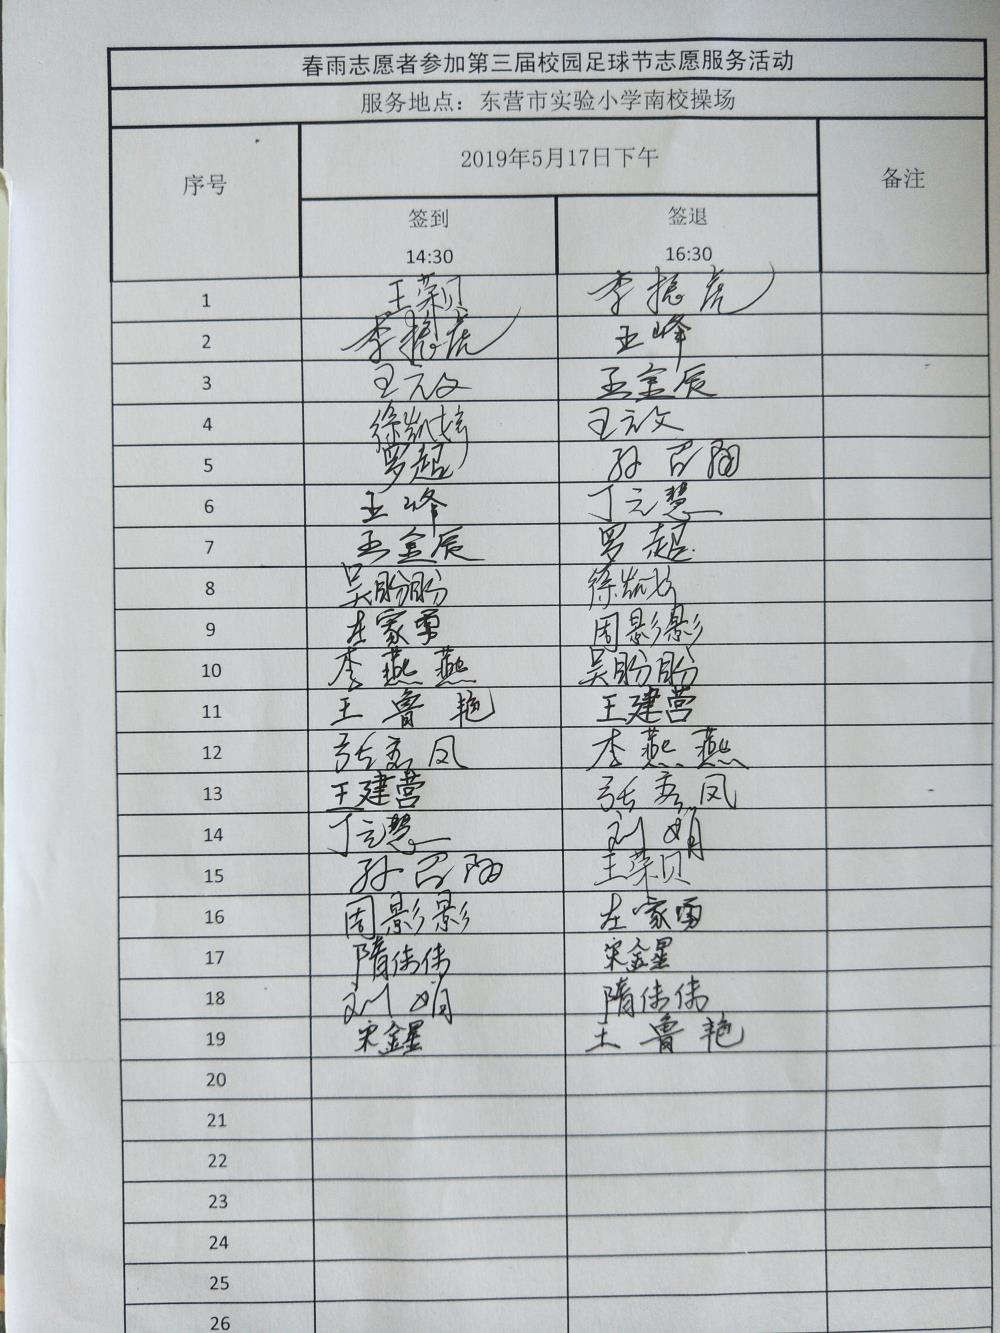 春雨志愿者参加第三届校园足球节志愿服务活动
服务地点：东营市实验小学南校操场
序号 2019年5月17日下午 备注
签到 签退
14:30 16:30
1 王荣贝 李振虎
2 李振虎 王峰
3 王元文 王金辰
4 徐凯婷 王元文
5 罗超 孙召翔
6 王峰 丁元慧
7 王金辰 罗超
8 吴盼盼 徐凯婷
9 左家勇 周影影
10 李燕燕 吴盼盼
11 王鲁艳 王建营
12 张秀凤 李燕燕
13 王建营 张秀凤
14 丁元慧 刘娟
15 孙召翔 王荣贝
16 周影影 左家勇
17 隋伟伟 宋金星
18 刘娟 隋伟伟
19 宋金星 王鲁艳
20
21
22
23
24
25
26